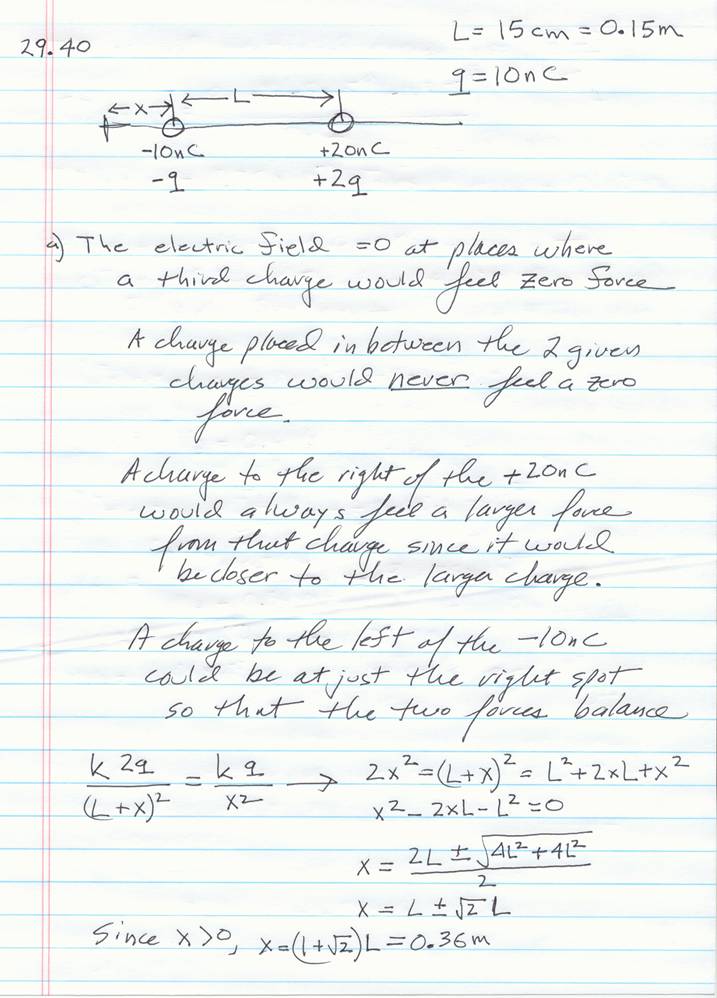 29.40
L= 15cm = 0.15m
q=10nC
x L
-10nC +20nC
-q +2q
a) The electric field =0 at places where
a third charge would feel zero force
A charge placed in between the 2 given
charges would never feel a zero
force.
A charge to the right of the +20nC
would always feel a larger force
from that charge since it would
be closer to the larger charge.
A charge to the left of the -10nC
could be at just the right spot
so that the two forces balance
k 2q/(L+x)² = k q/x² → 2x²=(L+x)² = L²+2xL+x²
x²-2xL-L²=0
x = (2L ± √(4L²+4L²))/2
x = L ± √2 L
Since x>0, x=(1+√2)L = 0.36m